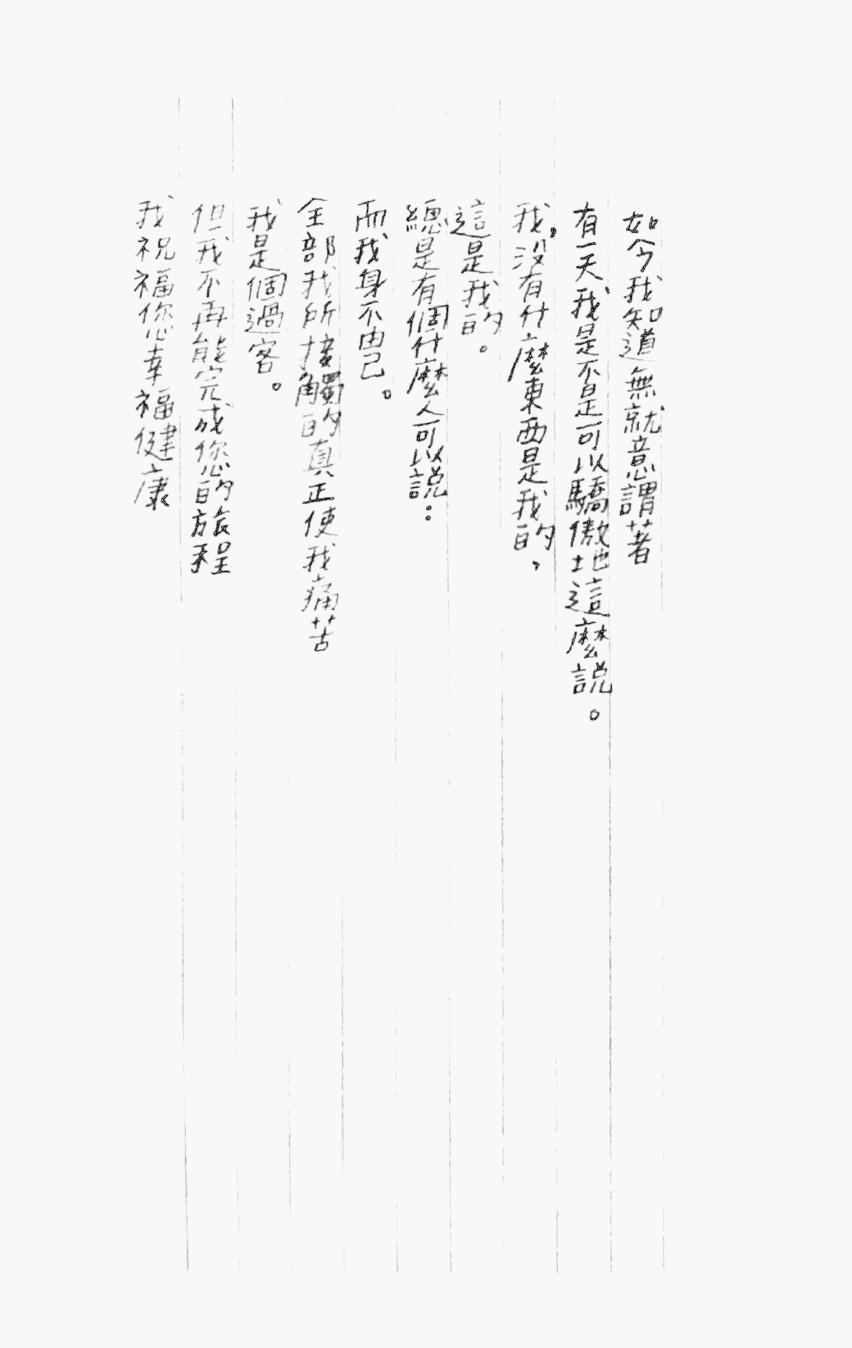 如今我知道無就意謂著
有一天我是不是可以驕傲地這麼說。
我，沒有什麼東西是我的，
這是我的。
總是有個什麼人可以説：
而我身不由己。
全部我所接觸的真正使我痛苦
我是個過客。
但我不再能完成您的旅程
我祝福您幸福健康